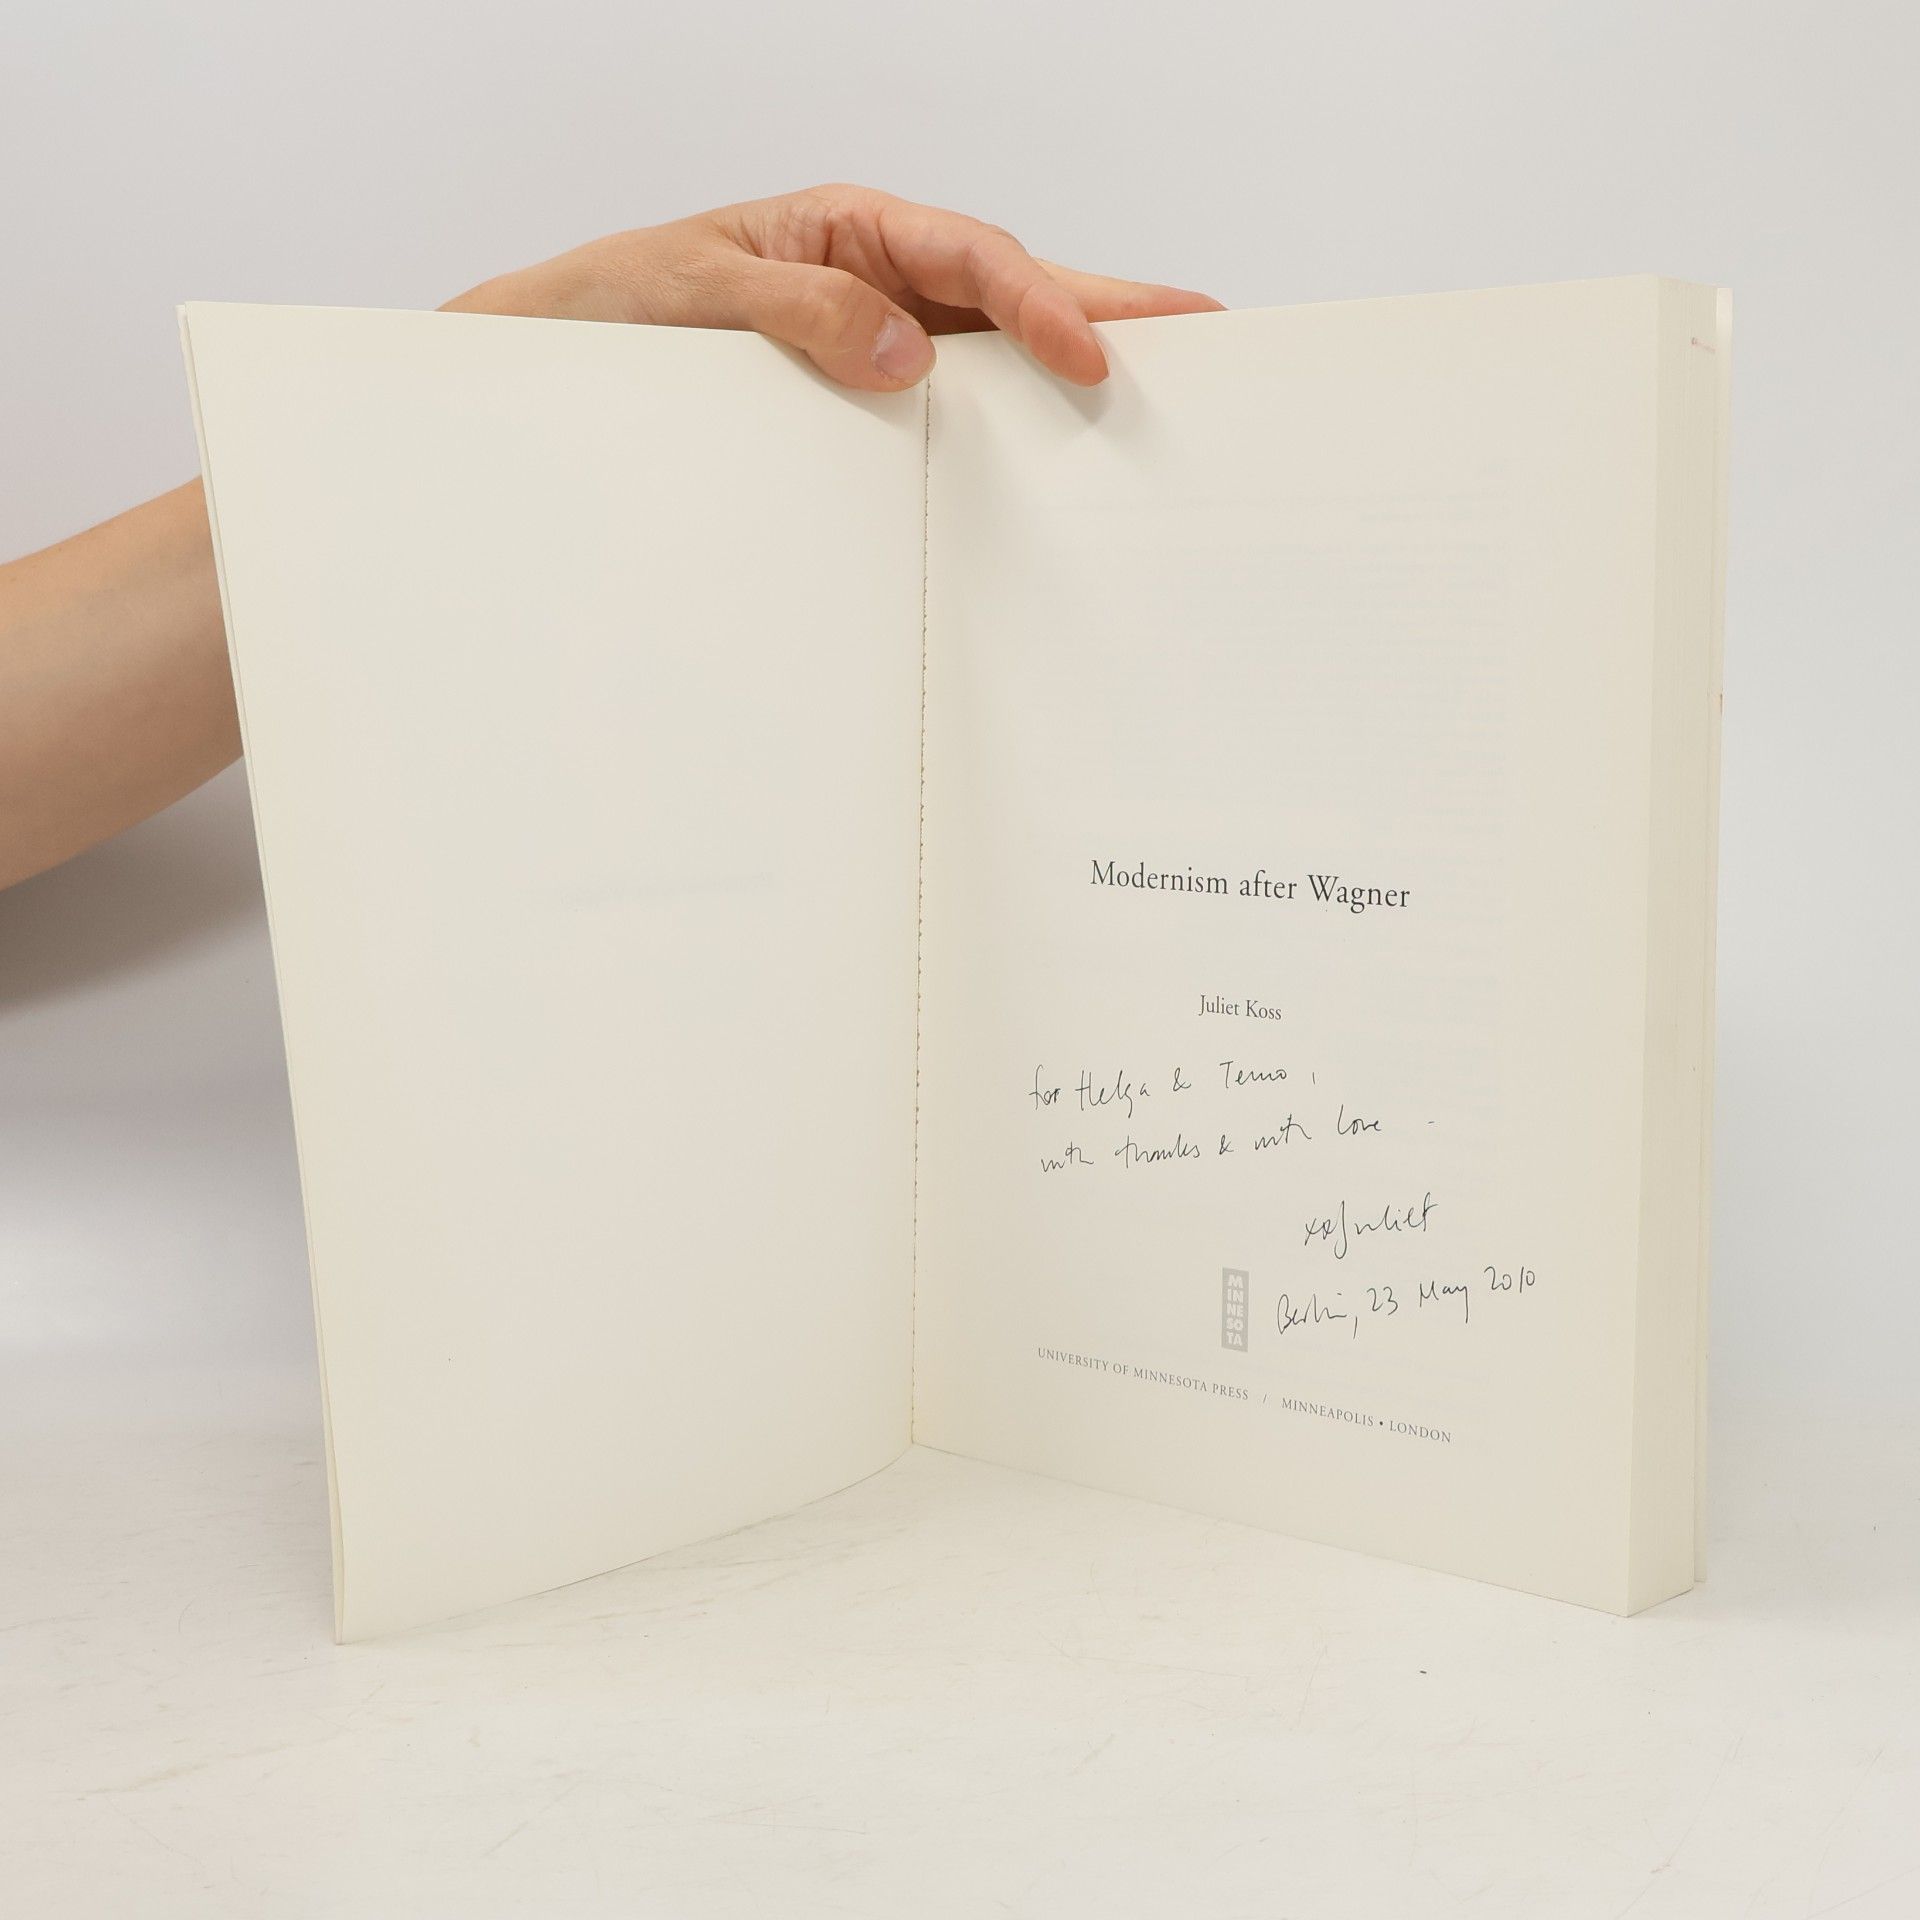 Modernism after Wagner
Juliet Koss
for Helga & Temo,
with thanks & with love -
xoJuliet
Berlin, 23 May 2010
M
IN
NE
SO
TA
UNIVERSITY OF MINNESOTA PRESS / MINNEAPOLIS • LONDON